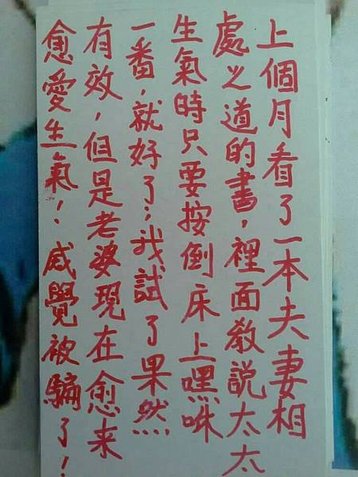 上個月看了一本夫妻相
處之道的書，裡面教說太太
生氣時只要按倒床上嘿咻
一番，就好了…我試了果然
有效，但是老婆現在愈来
愈愛生氣！感覺被騙了！